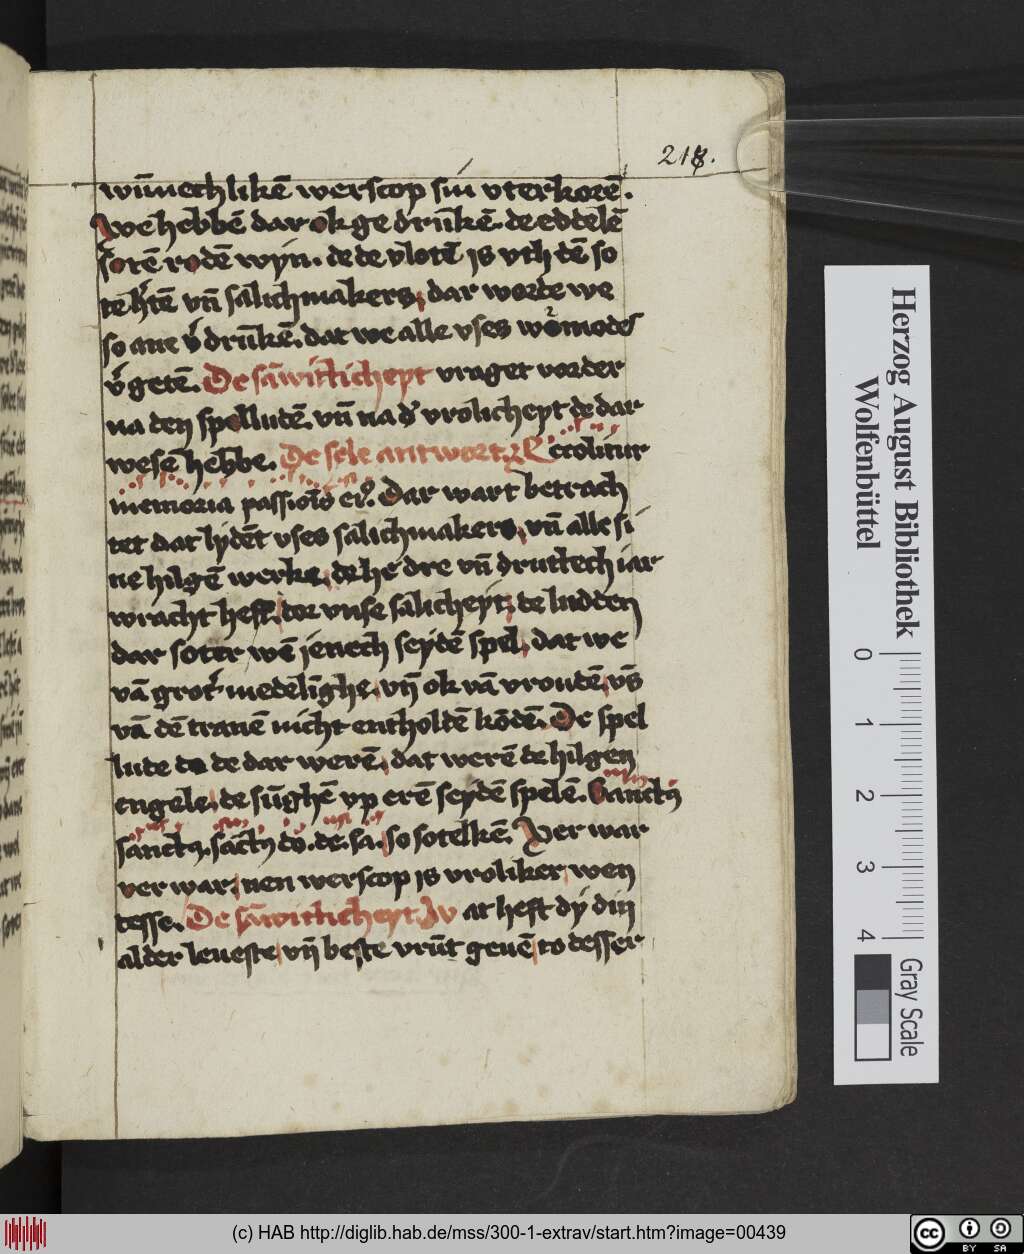 218.
wūnechlikē werscop sin vterkorē.
We hebbē dar ok ge drūkē. de eddelē
sotē rodē wyn. de de vlotē is vth dē so
te h̄tē vn̄ salichmakers, dar worde we
so ane v̄ drūkē. dat we alle vses wemodes
v̄getē. De sāwitticheyt vraget vorder
na den spelludē. vn̄ na d' vrolicheyt de dar
wesē hebbe. De sele antwort. Recolitur
memoria passiōis ei9. Dar wart betrach
tet dat lydēt vses salichmakers, vn̄ alle si
ne hilgē werke, de he dre vn̄ druttech iar
wracht heft, dor vnse salicheyt, de ludden
dar soter wē jenech seydē spel, dat we
vā grot' medelīghe, vn̄ ok vā vroudē, vs̄
vā dē tranē nicht entholdē kōdē. De spel
lude de dar werē, dat werē de hilgen
engele, de sūghē vp erē seydē spelē. Sanctus
sanctus, sāctus do. de. sa. so sotelkē. Ver war
ver war, nen werscop is vroliker, wen
desse. De sāwitticheyt. Iv at heft dy din
alder leueste, vn̄ beste vrūt geuē, to desser
Herzog August Bibliothek
Wolfenbüttel
0 1 2 3 4
Gray Scale
(c) HAB http://diglib.hab.de/mss/300-1-extrav/start.htm?image=00439
cc BY SA